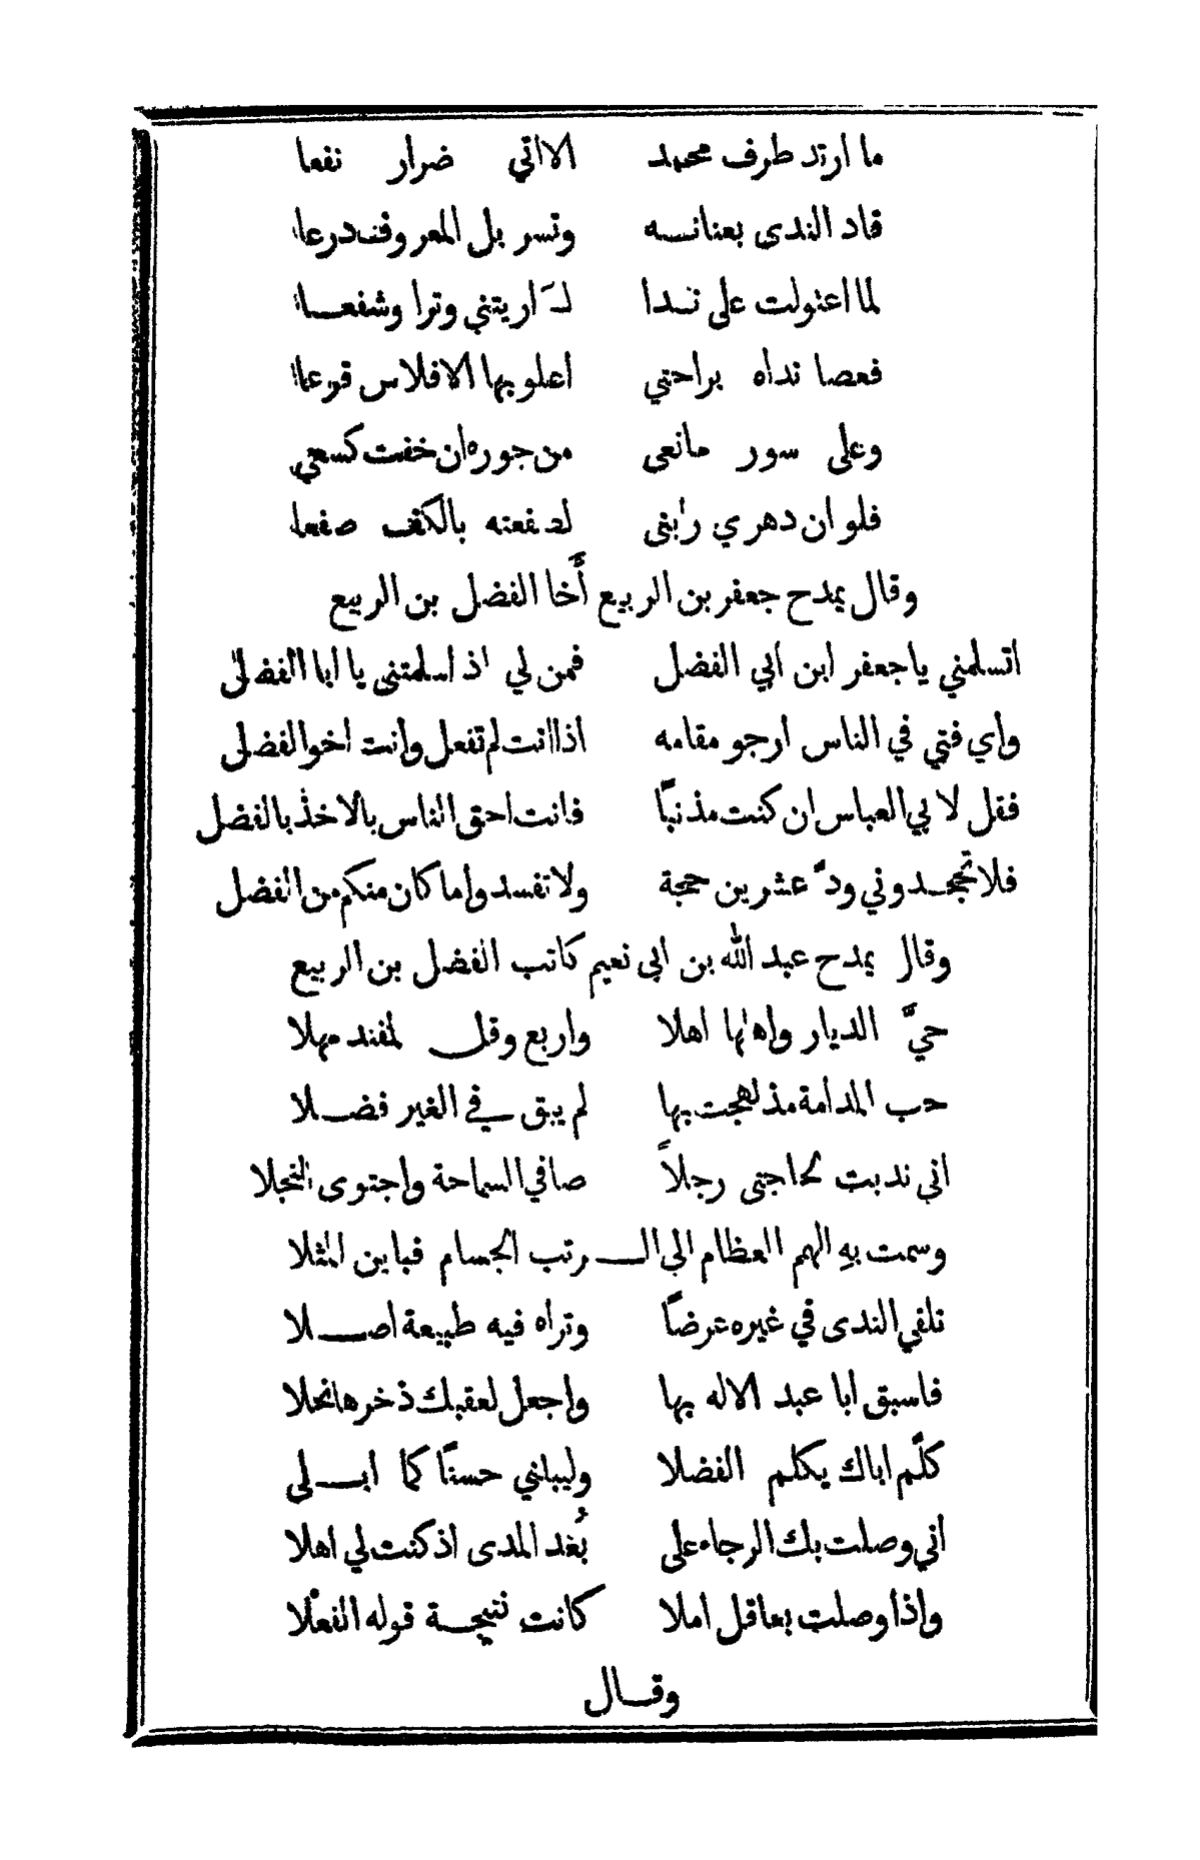 ما ارتد طرف محمد الا اتي ضرار نفعا
قاد الندى بعنانه وتسربل المعروف درعا
لما اعتولت على ندا لـَ اريتني وترا وشفعا
فعصا نداه براحتي اعلو بها الافلاس قرعا
وعلى سور مانعى من جوره ان خفت كسعي
فلو ان دهري رابنى لصفعته بالكف صفعا
وقال يمدح جعفر بن الربيع أَخا الفضل بن الربيع
اتسلمني يا جعفر ابن ابي الفضل فمن لي اذا سلمتني يا ابا الفضل
واي فتي في الناس ارجو مقامه اذا انت لم تفعل وانت اخو الفضل
فقل لابي العباس ان كنت مذنبًا فانت احق الناس بالاخذ بالفضل
فلا تجحدوني ودَّ عشرين حجة ولا تفسدوا ما كان منكم من الفضل
وقال يمدح عبد الله بن ابي نعيم كاتب الفضل بن الربيع
حيَّ الديار واهلها اهلا واربع وقل لمفند مهلا
حب المدامة مذ لهجت بها لم يبق في الغير فضلا
اني ندبت لحاجتي رجلاً صافي السماحة واجتوى البخلا
وسمت بهِ الهمم العظام الي الـرتب الجسام فباين المثلا
تلفي الندى في غيره عرضًا وتراه فيه طبيعة اصلا
فاسبق ابا عبد الاله بها واجعل لعقبك ذخرها نحلا
كلَّم اباك يكلم الفضلا وليبلني حسنًا كما ابلى
اني وصلت بك الرجاء على بُعْد المدى اذ كنت لي اهلا
واذا وصلت بعاقل املا كانت نتيجة قوله الفعْلا
وقال